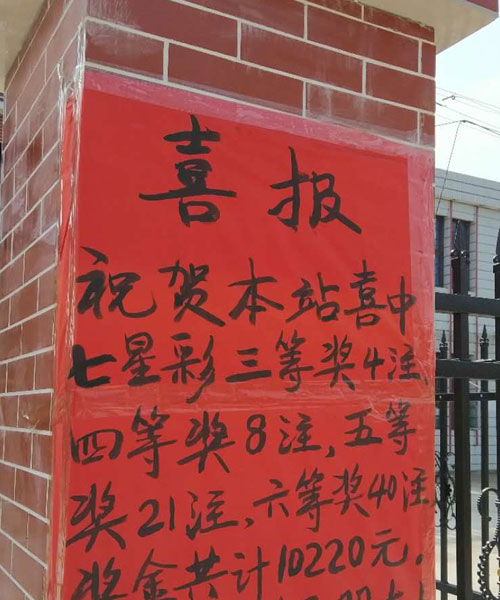 喜报
祝贺本站喜中
七星彩三等奖4注、
四等奖8注,五等
奖21注,六等奖40注,
奖金共计10220元,